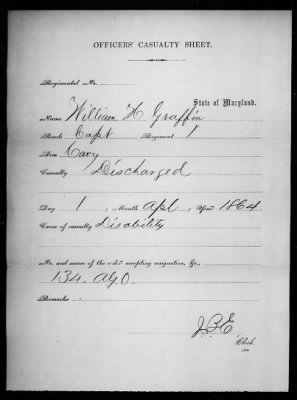 OFFICERS' CASUALTY SHEET.
Regimental No.
State of Maryland.
Name William H Graffin
Rank Capt Regiment 1
Arm Cavy
Casualty Discharged
Day 1, Month Apl, Year 1864
Cause of casualty Disability
No. and source of the order accepting resignation, &c.,
134. AGO.
Remarks
J.B.E
Clerk.